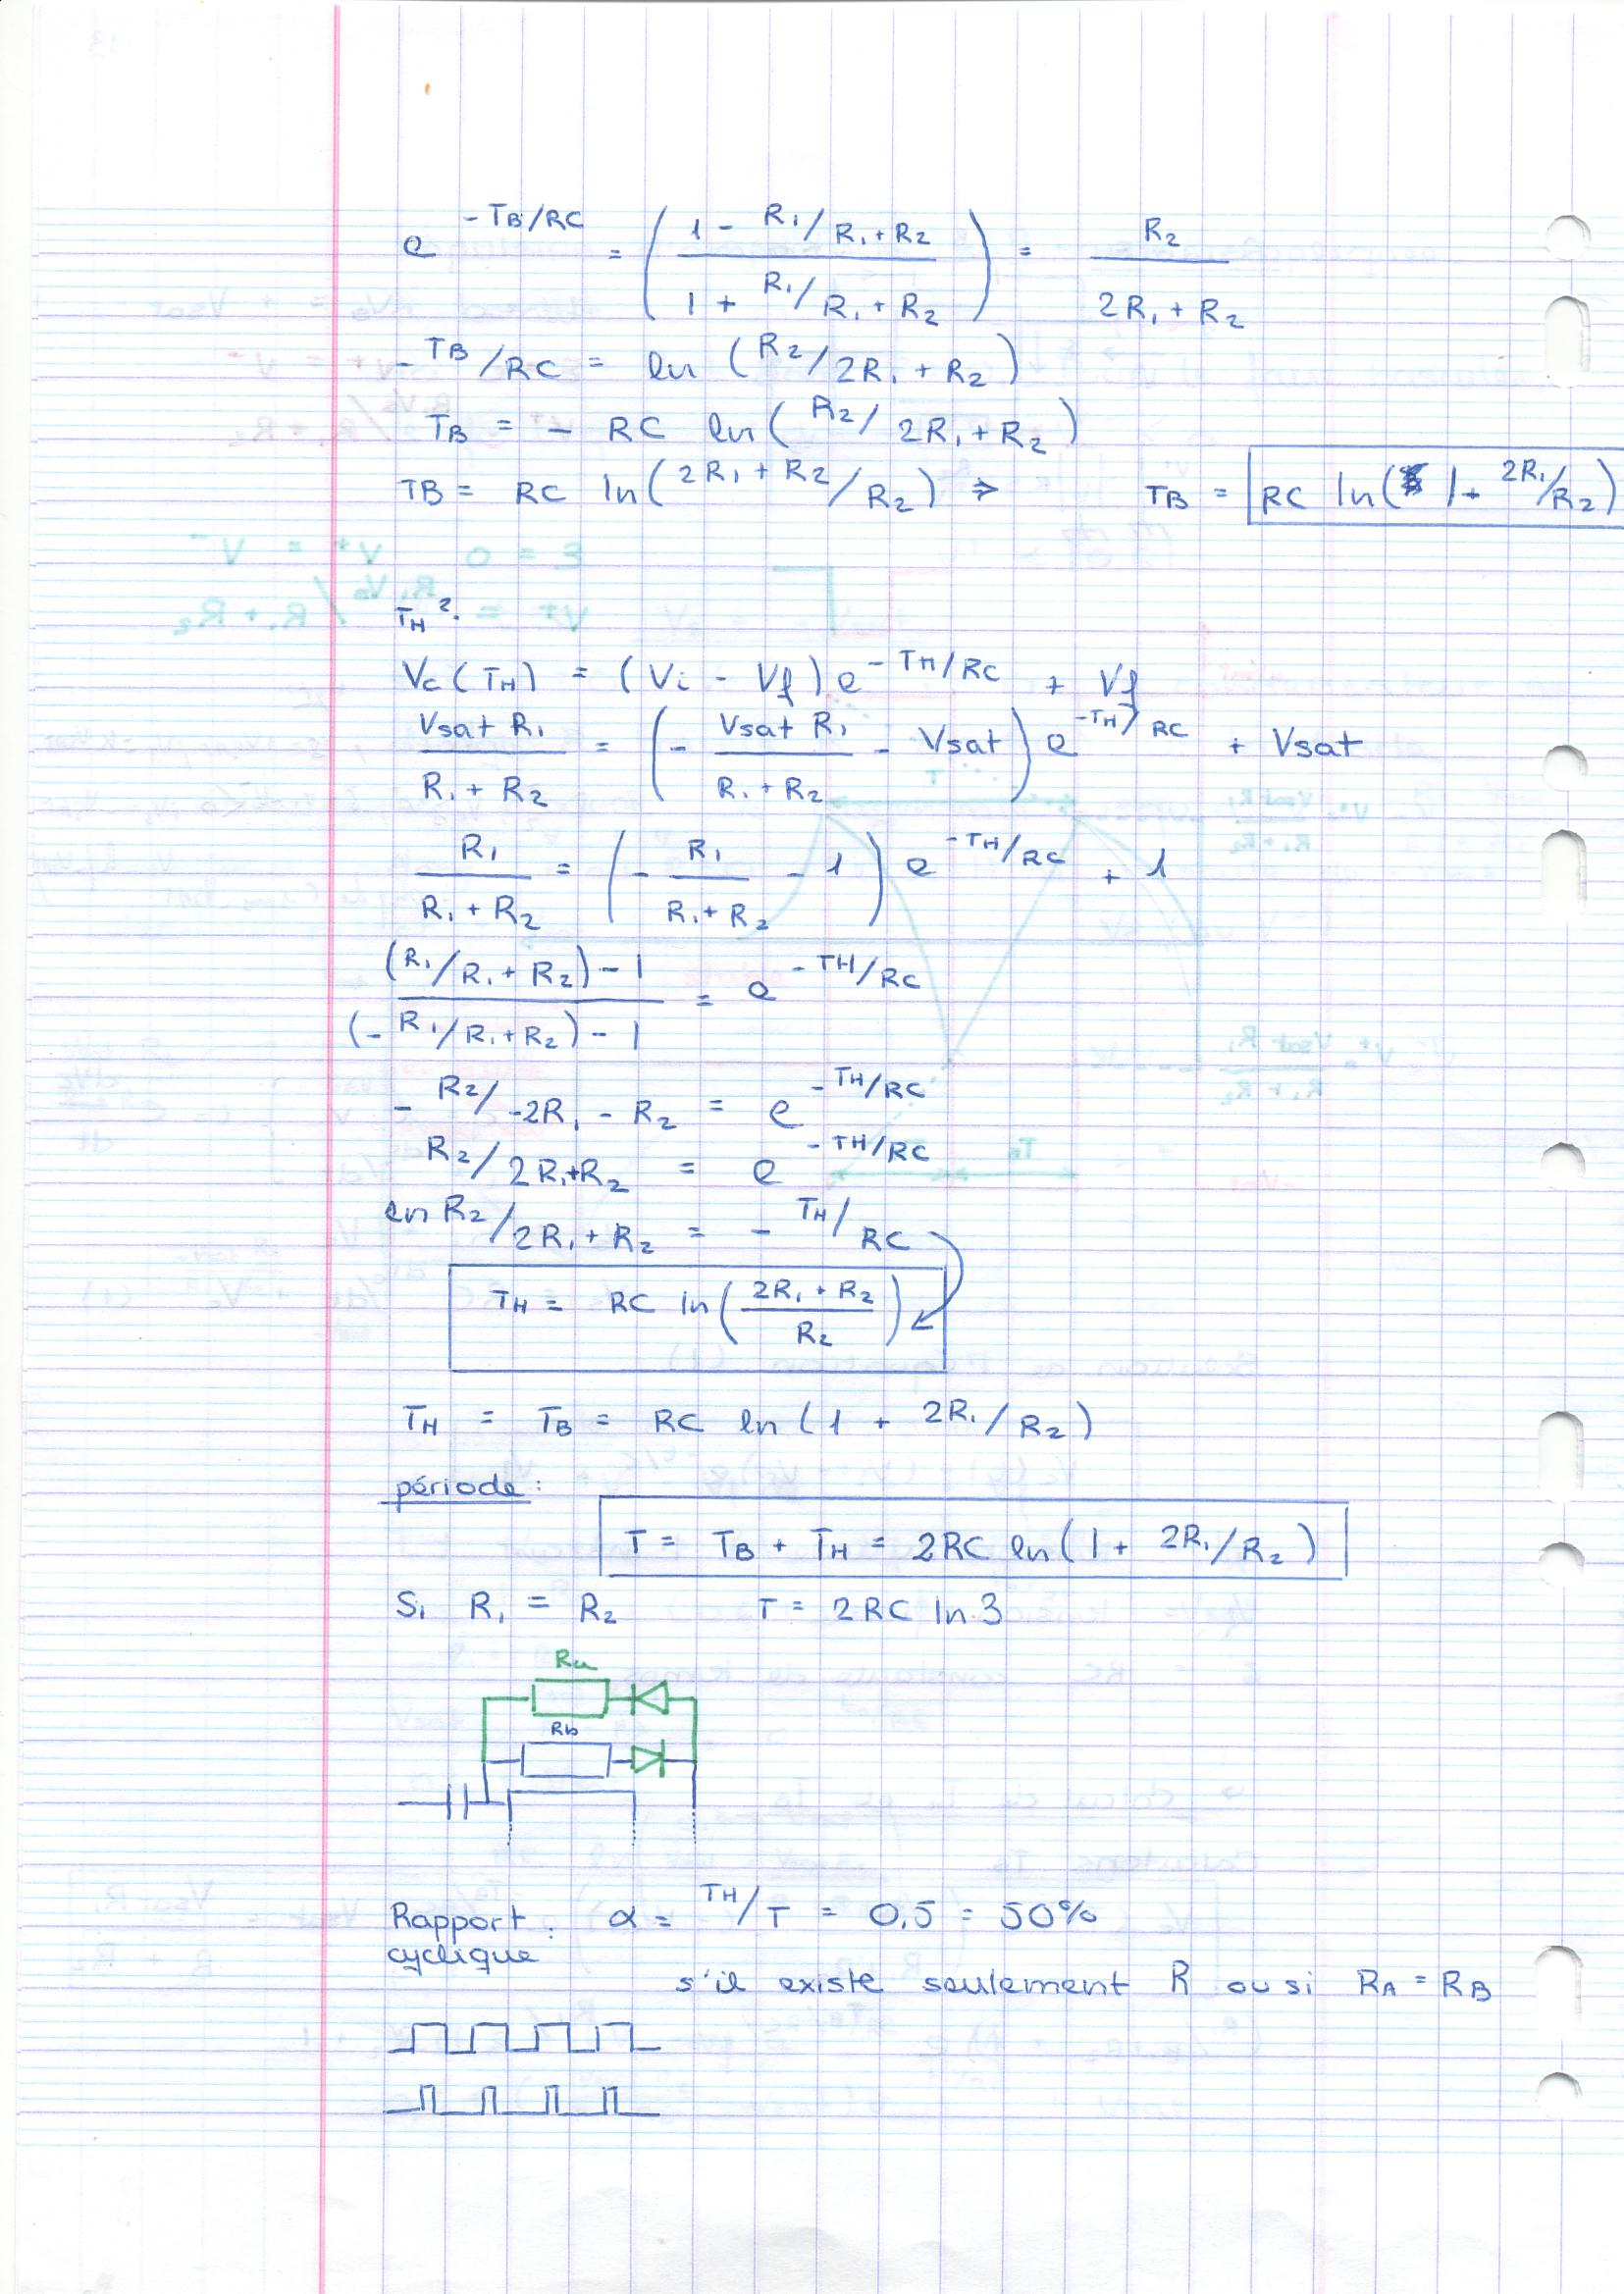 e^(-TB/RC) = ( (1 - R1/R1+R2) / (1 + R1/R1+R2) ) = R2 / (2R1+R2)
- TB/RC = ln (R2/2R1+R2)
TB = - RC ln(R2/2R1+R2)
TB = RC ln(2R1+R2/R2) ⇒ TB = RC ln(1+ 2R1/R2)
TH ?
Vc(TH) = (Vi - Vf) e^(-TH/RC) + Vf
Vsat R1 / (R1+R2) = (- Vsat R1 / (R1+R2) - Vsat) e^(-TH/RC) + Vsat
R1 / (R1+R2) = (- R1 / (R1+R2) - 1) e^(-TH/RC) + 1
((R1/R1+R2) - 1) / ((-R1/R1+R2) - 1) = e^(-TH/RC)
- R2/-2R1-R2 = e^(-TH/RC)
R2/2R1+R2 = e^(-TH/RC)
ln R2/2R1+R2 = - TH/RC
TH = RC ln( (2R1+R2) / R2 )
TH = TB = RC ln(1 + 2R1/R2)
période :
T = TB + TH = 2RC ln(1+ 2R1/R2)
Si R1 = R2 T = 2RC ln 3
Ra
Rb
Rapport : α = TH/T = 0,5 = 50%
cyclique
s'il existe seulement R ou si RA = RB